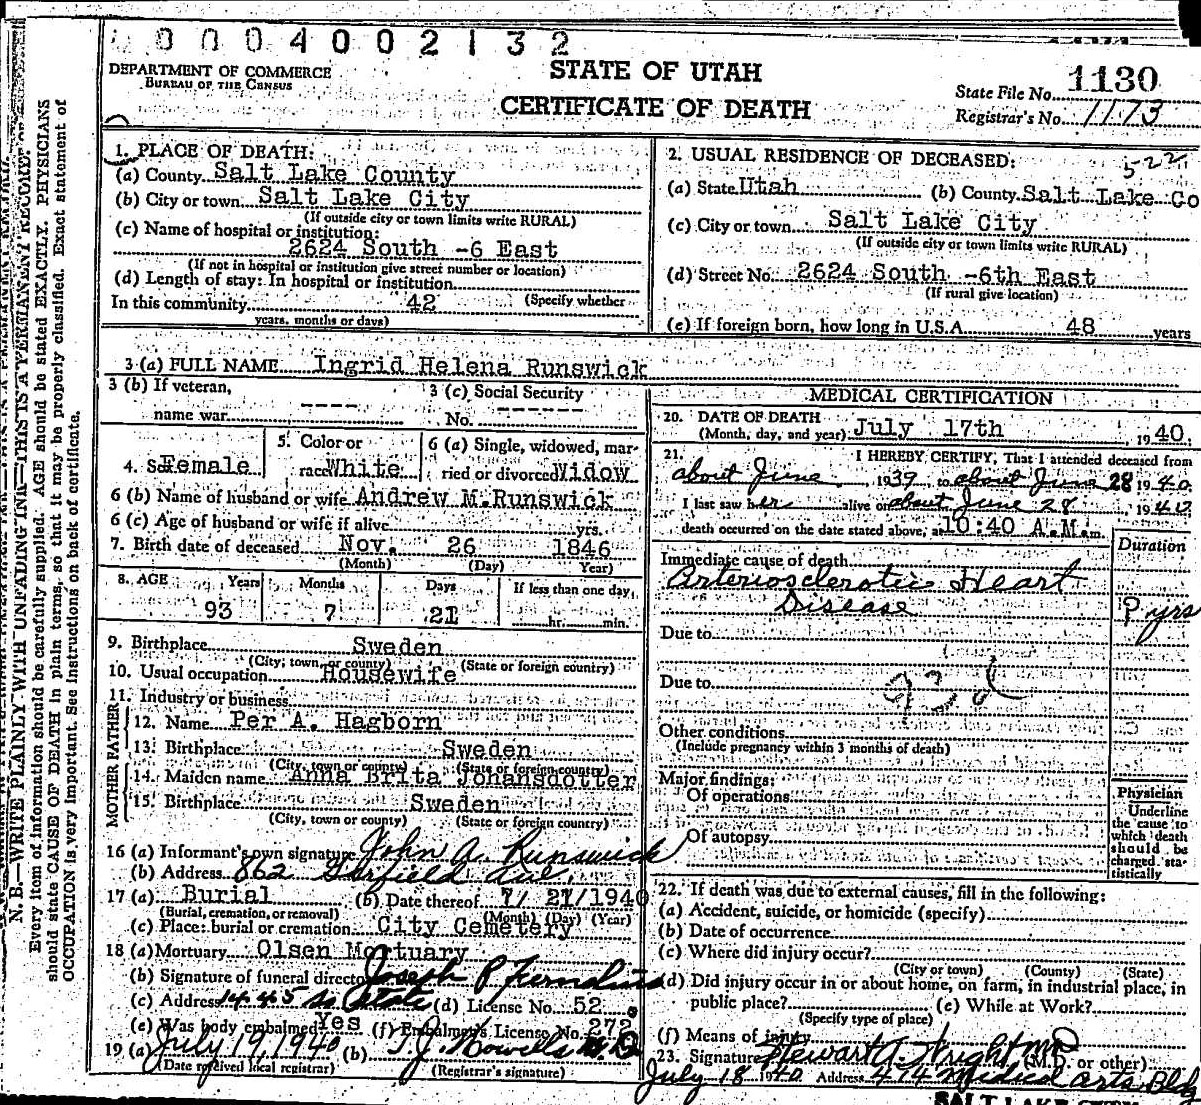 0004002132
DEPARTMENT OF COMMERCE
BUREAU OF THE CENSUS
STATE OF UTAH
CERTIFICATE OF DEATH
State File No. 1130
Registrar's No. 1173
1. PLACE OF DEATH:
(a) County Salt Lake County
(b) City or town Salt Lake City
(If outside city or town limits write RURAL)
(c) Name of hospital or institution:
2624 South -6 East
(If not in hospital or institution give street number or location)
(d) Length of stay: In hospital or institution
In this community 42 (Specify whether
years, months or days)
2. USUAL RESIDENCE OF DECEASED: 522
(a) State Utah (b) County Salt Lake Co
(c) City or town Salt Lake City
(If outside city or town limits write RURAL)
(d) Street No. 2624 South -6th East
(If rural give location)
(e) If foreign born, how long in U.S.A. 48 years
3 (a) FULL NAME Ingrid Helena Runswick
3 (b) If veteran, 3 (c) Social Security
name war ---- No. ------
4. Sex Female 5. Color or race White 6 (a) Single, widowed, married or divorced Widow
6 (b) Name of husband or wife Andrew M. Runswick
6 (c) Age of husband or wife if alive yrs.
7. Birth date of deceased Nov. 26 1846
(Month) (Day) (Year)
8. AGE Years Months Days If less than one day,
93 7 21 hr. min.
9. Birthplace Sweden
(City, town, or county) (State or foreign country)
10. Usual occupation Housewife
11. Industry or business
FATHER
12. Name Per A. Hagborn
13. Birthplace Sweden
(City, town or county) (State or foreign country)
MOTHER
14. Maiden name Anna Brita Johansdotter
15. Birthplace Sweden
(City, town or county) (State or foreign country)
16 (a) Informant's own signature John A. Runswick
(b) Address 862 Garfield Ave.
17 (a) Burial (b) Date thereof 7/ 21/1940
(Burial, cremation, or removal) (Month) (Day) (Year)
(c) Place: burial or cremation City Cemetery
18 (a) Mortuary Olsen Mortuary
(b) Signature of funeral director Joseph P
(c) Address 1445 So State (d) License No. 52
(e) Was body embalmed Yes (f) Embalmer's License No. 272
19 (a) July 19, 1940 (b) T.J. Howells M.D.
(Date received local registrar) (Registrar's signature)
MEDICAL CERTIFICATION
20. DATE OF DEATH
(Month, day, and year) July 17th 1940.
21. I HEREBY CERTIFY, That I attended deceased from
about June 1939 to about June 28 1940
I last saw her alive on about June 28 1940
death occurred on the date stated above, at 10:40 A.M. m.
Immediate cause of death Duration
Arteriosclerotic Heart
Disease ? yrs
Due to
Due to
93d
Other conditions
(Include pregnancy within 3 months of death)
Major findings:
Of operations
Of autopsy
Physician
Underline
the cause to
which death
should be
charged statistically
22. If death was due to external causes, fill in the following:
(a) Accident, suicide, or homicide (specify)
(b) Date of occurrence
(c) Where did injury occur?
(City or town) (County) (State)
(d) Did injury occur in or about home, on farm, in industrial place, in
public place? (e) While at Work?
(Specify type of place)
(f) Means of injury
23. Signature Stewart A. Wright MD (M.D. or other)
July 18 1940 Address 474 Medical Arts Bldg
SALT LAKE CITY
N. B.—WRITE PLAINLY WITH UNFADING INK—THIS IS A PERMANENT RECORD
Every item of information should be carefully supplied. AGE should be stated EXACTLY. PHYSICIANS
should state CAUSE OF DEATH in plain terms, so that it may be properly classified. Exact statement of
OCCUPATION is very important. See instructions on back of certificate.